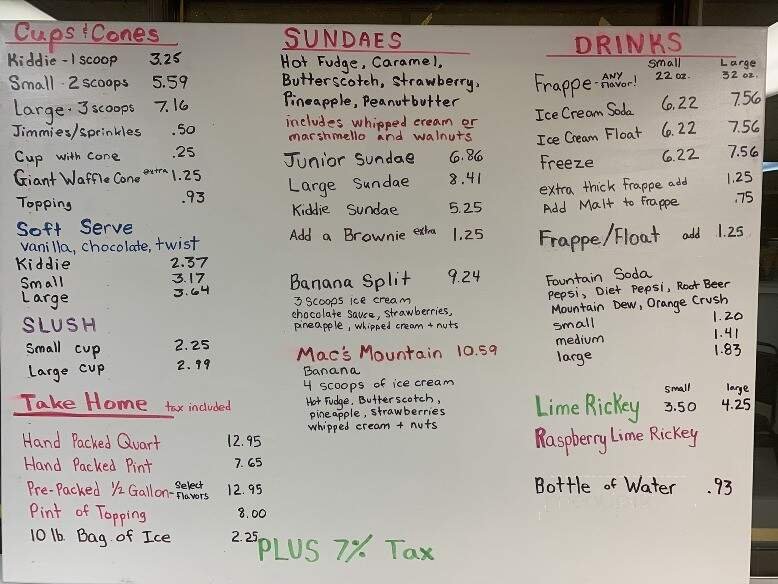 Cups & Cones
Kiddie - 1 scoop 3.25
Small - 2 scoops 5.59
Large - 3 scoops 7.16
Jimmies/sprinkles .50
Cup with cone .25
Giant Waffle Cone extra 1.25
Topping .93
Soft Serve
vanilla, chocolate, twist
Kiddie 2.37
Small 3.17
Large 3.64
SLUSH
Small cup 2.25
Large cup 2.99
Take Home tax included
Hand Packed Quart 12.95
Hand Packed Pint 7.65
Pre-Packed 1/2 Gallon - Select Flavors 12.95
Pint of Topping 8.00
10 lb. Bag of Ice 2.25
SUNDAES
Hot Fudge, Caramel,
Butterscotch, Strawberry,
Pineapple, Peanutbutter
includes whipped cream or
marshmello and walnuts
Junior Sundae 6.86
Large Sundae 8.41
Kiddie Sundae 5.25
Add a Brownie extra 1.25
Banana Split 9.24
3 scoops ice cream
chocolate sauce, strawberries,
pineapple, whipped cream + nuts
Mac's Mountain 10.59
Banana
4 scoops of ice cream
Hot Fudge, Butterscotch,
pineapple, strawberries
whipped cream + nuts
DRINKS
Small Large
Frappe - ANY flavor! 22 oz. 32 oz.
Ice Cream Soda 6.22 7.56
Ice Cream Float 6.22 7.56
Freeze 6.22 7.56
extra thick frappe add 1.25
Add Malt to frappe .75
Frappe/Float add 1.25
Fountain Soda
Pepsi, Diet Pepsi, Root Beer
Mountain Dew, Orange Crush
small 1.20
medium 1.41
large 1.83
small large
Lime Rickey 3.50 4.25
Raspberry Lime Rickey
Bottle of Water .93
PLUS 7% Tax